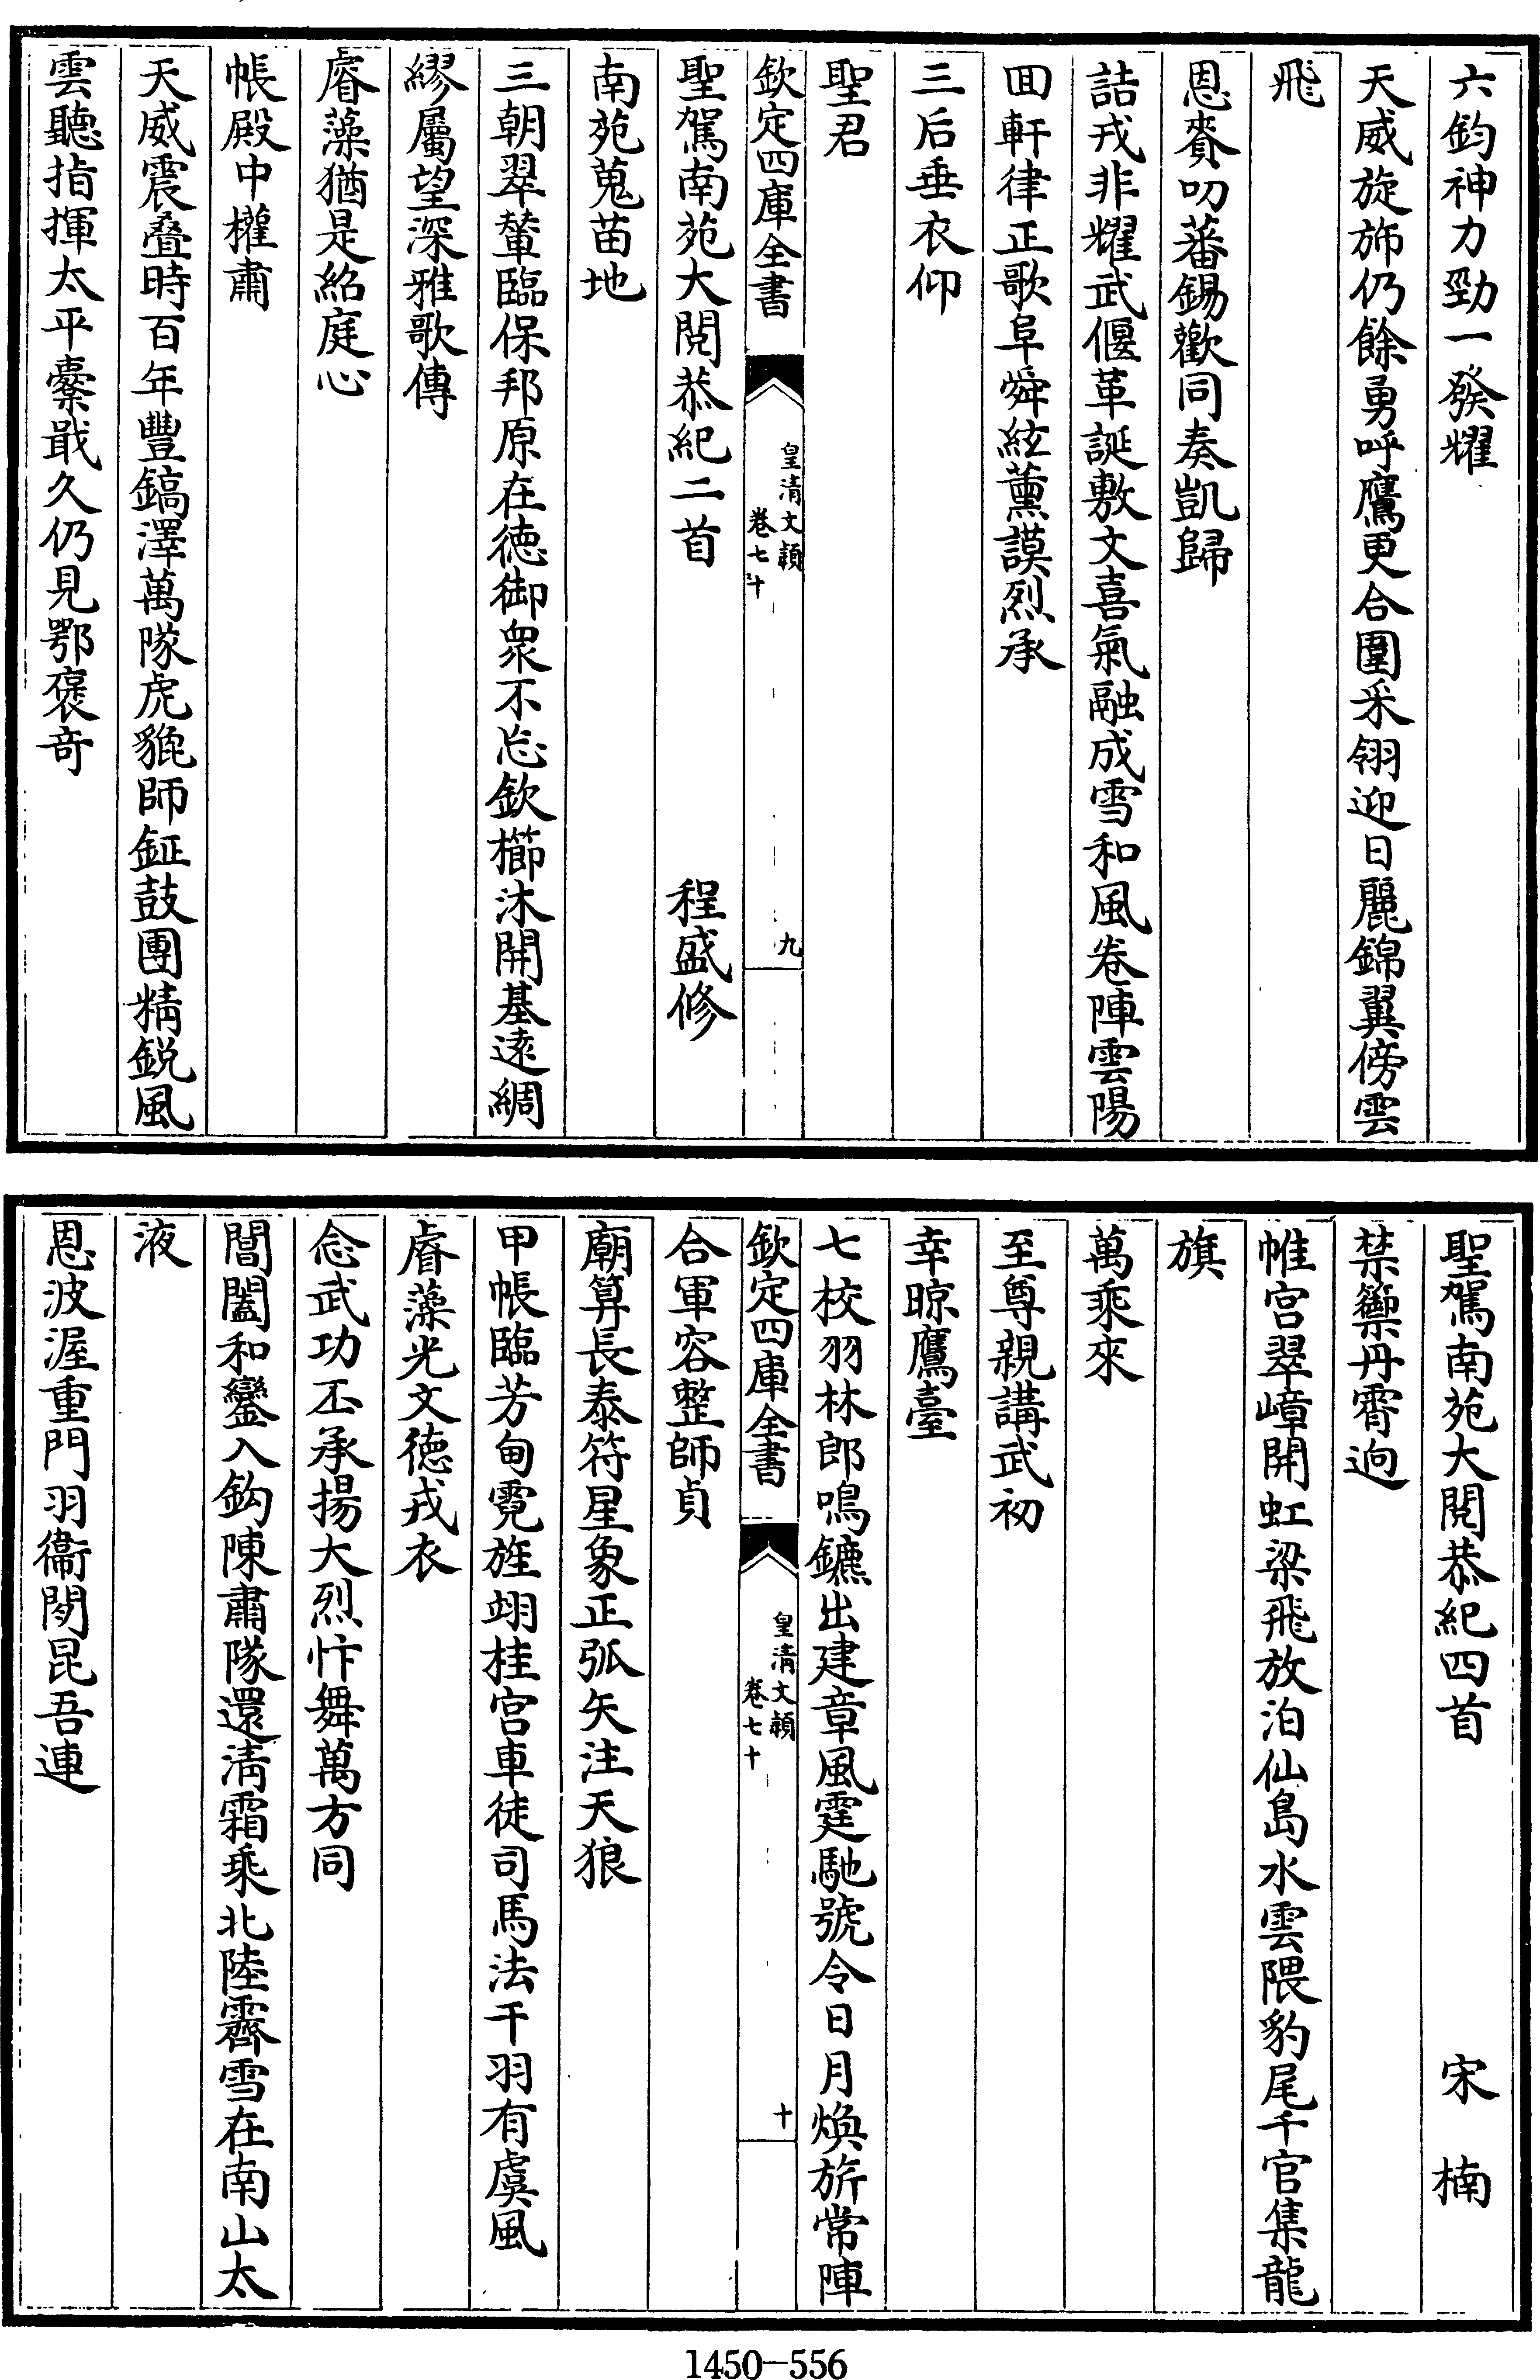 六鈞神力勁一發耀
天威旋斾仍餘勇呼鷹更合圍采翎迎日麗錦翼傍雲
飛
恩賚叨蕃錫歡同奏凱歸
詰戎非耀武偃革誕敷文喜氣融成雪和風卷陣雲陽
囬軒律正歌阜舜絃薰謨烈承
三后垂衣仰
聖君
欽定四庫全書
皇清文頴
卷七十
九
聖駕南苑大閱恭紀二首 程盛修
南苑蒐苗地
三朝翠輦臨保邦原在徳御衆不忘欽櫛沐開基遠綢
繆屬望深雅歌傳
睿藻猶是紹庭心
帳殿中權肅
天威震疊時百年豐鎬澤萬隊虎貔師鉦鼓團精鋭風
雲聽指揮太平櫜戢久仍見鄂褒奇
聖駕南苑大閱恭紀四首 宋楠
禁籞丹霄逈
帷宫翠嶂開虹梁飛放泊仙島水雲隈豹尾千官集龍
旗
萬乘來
至尊親講武初
幸晾鷹臺
七校羽林郎鳴鑣出建章風霆馳號令日月煥旂常陣
欽定四庫全書
皇清文頴
卷七十
十
合軍容整師貞
廟算長泰符星象正弧矢注天狼
甲帳臨芳甸霓旌翊桂宫車徒司馬法干羽有虞風
睿藻光文徳戎衣
念武功丕承揚大烈忭舞萬方同
閶闔和鑾入鈎陳肅隊還清霜乘北陸霽雪在南山太
液
恩波渥重門羽衞閑昆吾連
1450-556